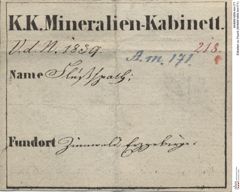 K.K. Mineralien-Kabinett.
V.d.N. 1839.
A.m. 171
218.
Name Flußspath.
Fundort Zinnwald Erzgebirge.